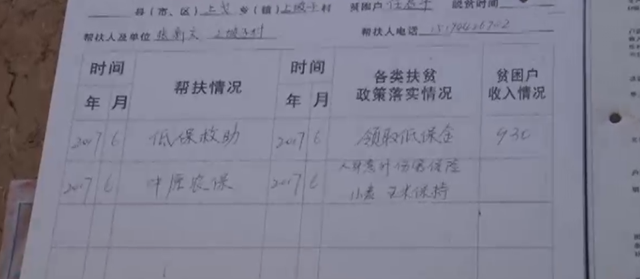 县（市、区） 上 乡（镇） 上坡子村 贫困户 任 脱贫时间
帮扶人及单位 张新文 上坡子村 帮扶人电话
时间 帮扶情况 时间 各类扶贫政策落实情况 贫困户收入情况
年 月 年 月
2017 6 低保救助 2017 6 领取低保金 930
2017 6 中原农保 2017 6 人身意外伤害保险
小麦 玉米保持